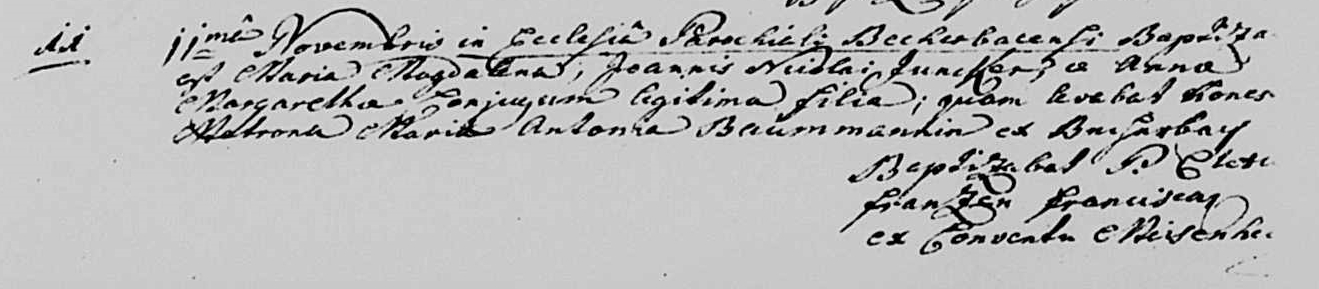 11 11mâ Novembris in Ecclesiâ Parochiali Becherbacensi Baptiza
est Maria Magdalena, Joannis Nicolai Juncker, & Annæ
Margarethæ Conjugum legitima filia; quam levabat hones
Matrona Maria Antonia Baummannin ex Becherbach
Baptizabat P.
franzen franciscan
ex Conventu Meisenhe